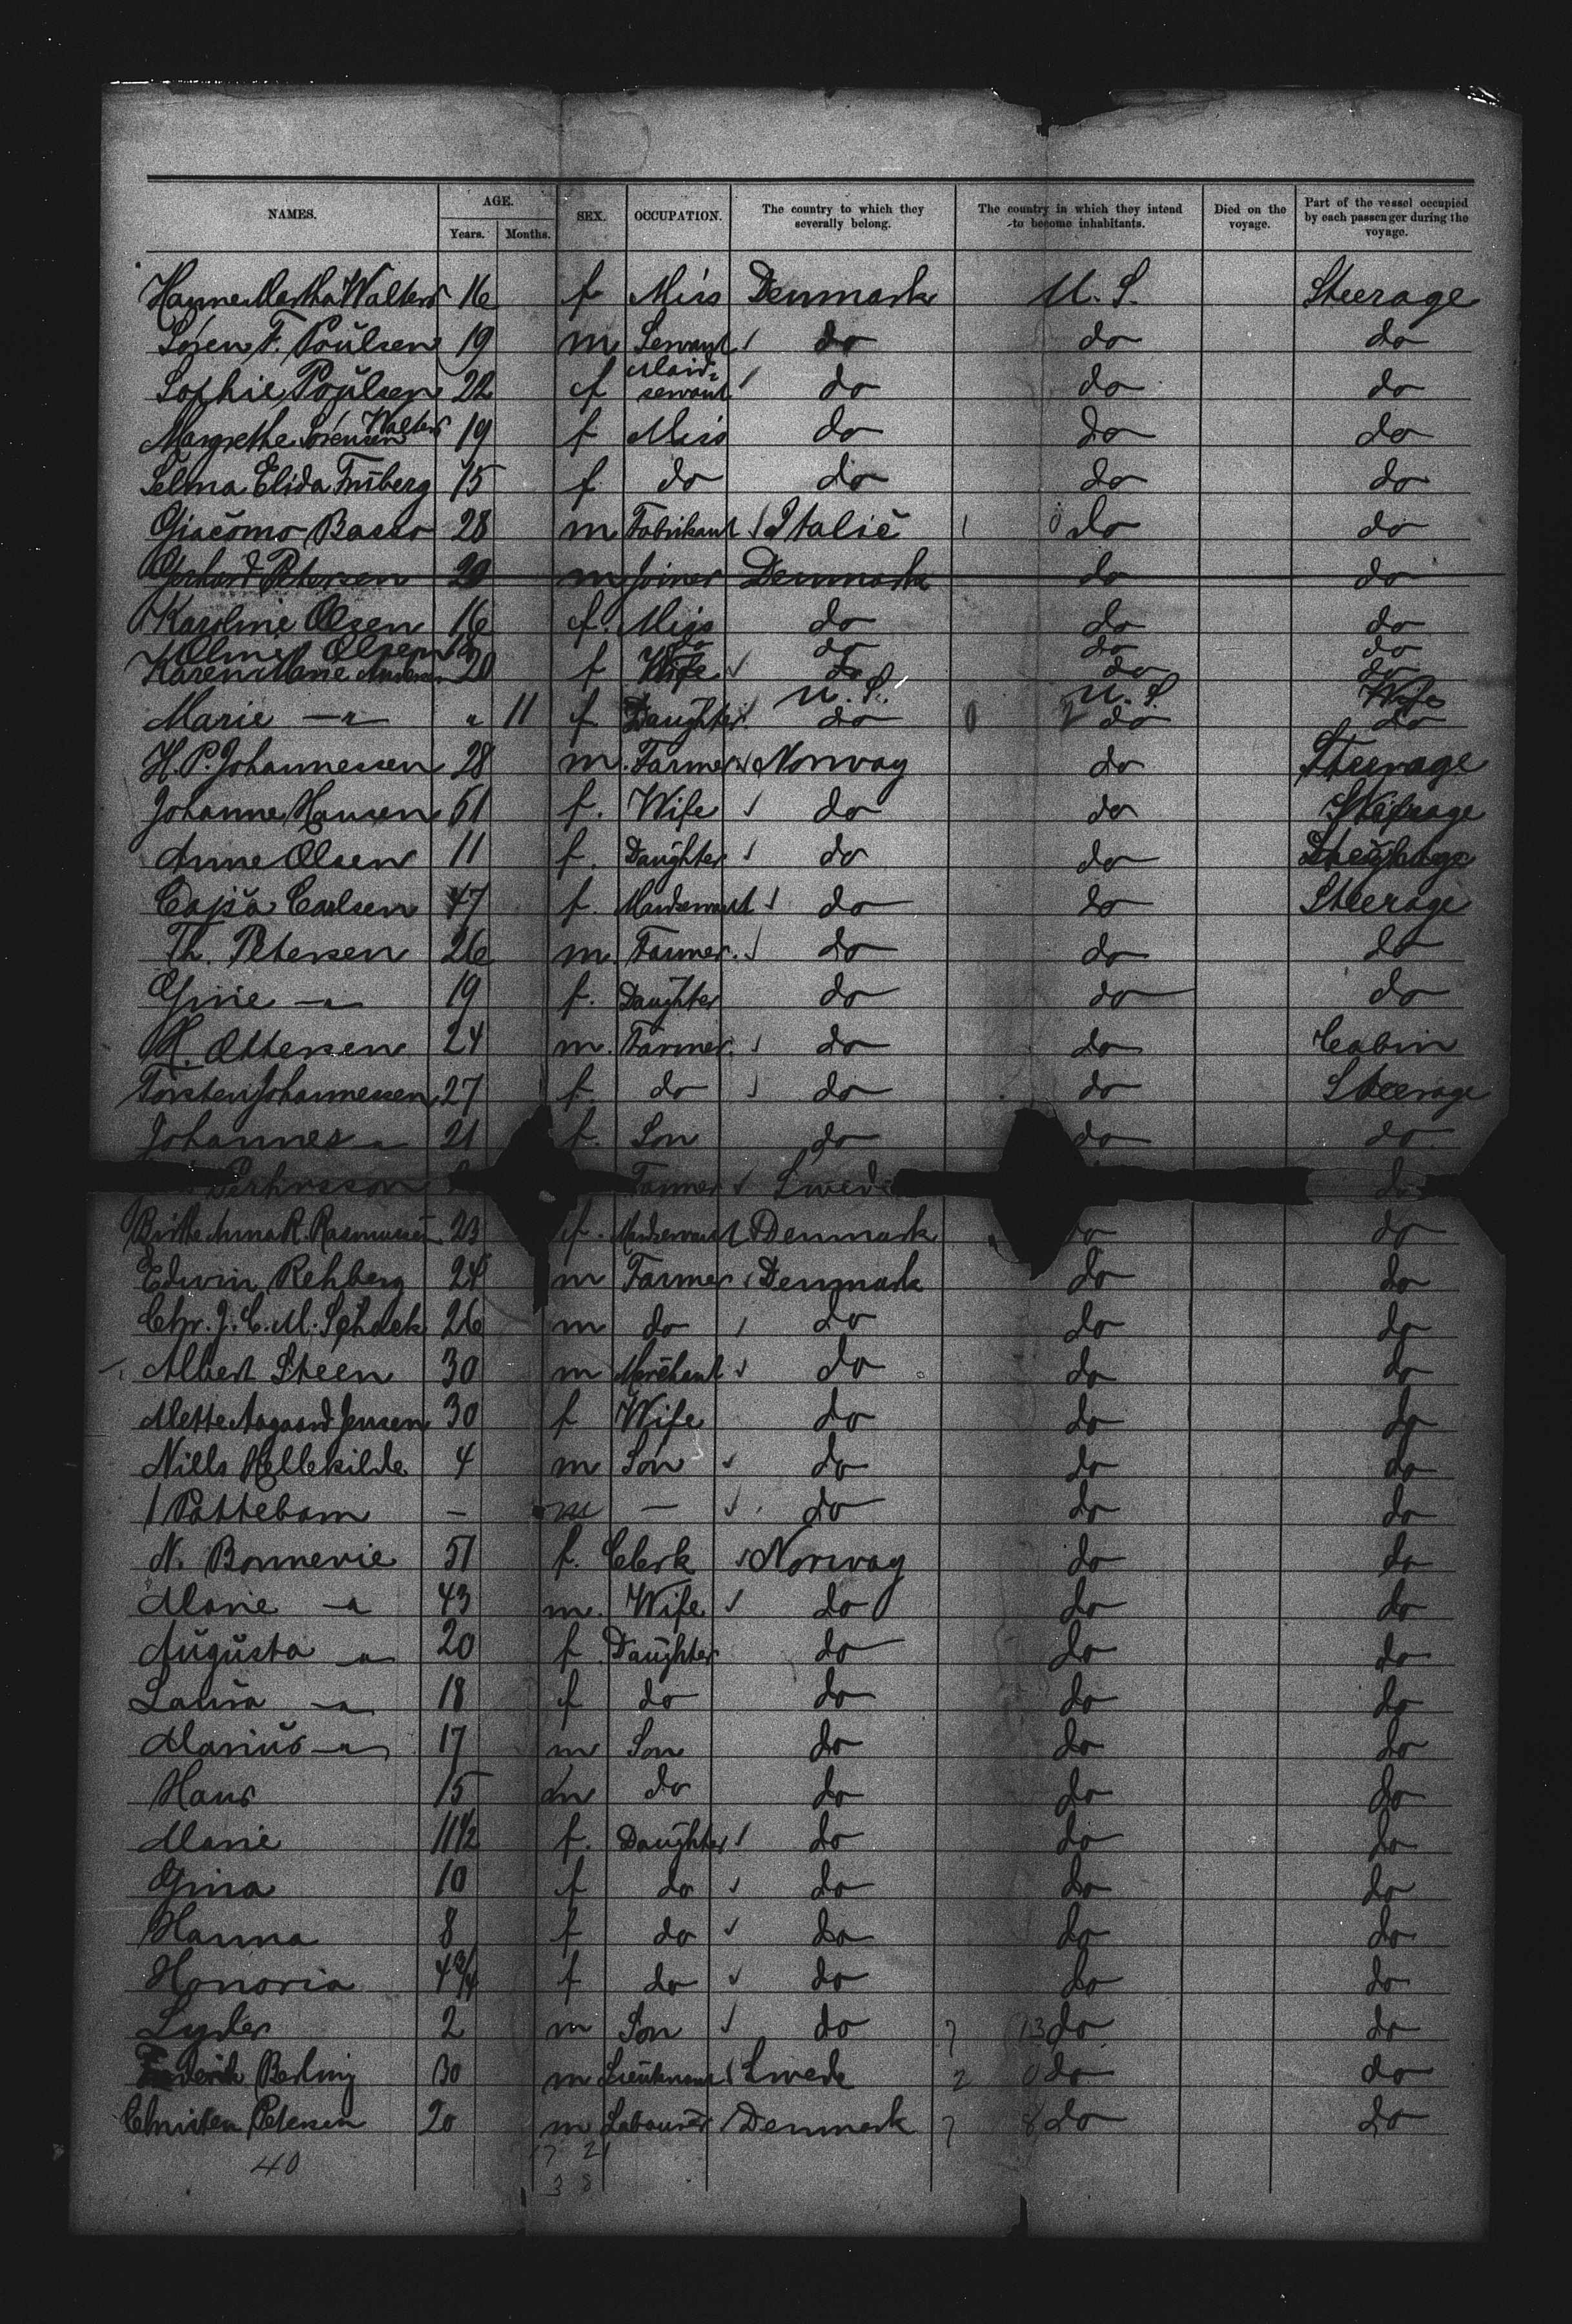 NAMES. AGE. SEX. OCCUPATION. The country to which they severally belong. The country in which they intend to become inhabitants. Died on the voyage. Part of the vessel occupied by each passenger during the voyage.
Years. Months.
Hanne Martha Walters 16 f Miss Denmark U. S. Steerage
Sören F. Poulsen 19 m Servant do do do
Sophie Poulsen 22 f Maid-servant do do do
Margrethe Sörensen Walters 19 f Miss do do do
Selma Elida Friberg 15 f do do do do
Giacomo Basso 28 m Fabrikant Italie do do
Gerhard Petersen 20 m Joiner Denmark do do
Karoline Olsen 16 f. Miss do do do
Olsen do do do do
Karen Marie 20 f Wife do do do
U. S. U. S.
Marie -"- " 11 f Daughter do do do
H. P. Johannessen 28 m. Farmer Norway do Steerage
Johanne Hansen 51 f. Wife do do Steerage
Anne Olsen 11 f. Daughter do do Steerage
Cajsa Carlsen 47 f. Maidservant do do Steerage
Th. Petersen 26 m. Farmer. do do do
Gine -"- 19 f. Daughter do do do
H. Ottersen 24 m. Farmer. do do Cabin
Torsten Johannessen 27 f. do do do Steerage
Johannes " 21 f. Son do do do
Farmer Swede do
Birthe Anna R. Rasmussen 23 f. Maidservant Denmark do do
Edwin Rehberg 24 m Farmer Denmark do do
Chr. J. C. M. Schack 26 m do do do do
Albert Steen 30 m Merchant do do do
Mette Aagaard Jensen 30 f Wife do do do
Niels Hellekilde 4 m Son do do do
1 Pattebarn - m - do do do
N. Bonnevie 51 f. Clerk Norway do do
Marie -" 43 m. Wife do do do
Augusta -"- 20 f Daughter do do do
Laura -"- 18 f do do do do
Marius -"- 17 m Son do do do
Hans 15 m do do do do
Marie 11 1/2 f. Daughter do do do
Gina 10 f do do do do
Hanna 8 f do do do do
Honoria 4 3/4 f do do do do
Lyder 2 m Son do 7 13 do do
Frederik Berling 30 m Lieutenant Swede 2 0 do do
Christen Petersen 20 m Labourer Denmark 7 8 do do
40 17 21
3 8